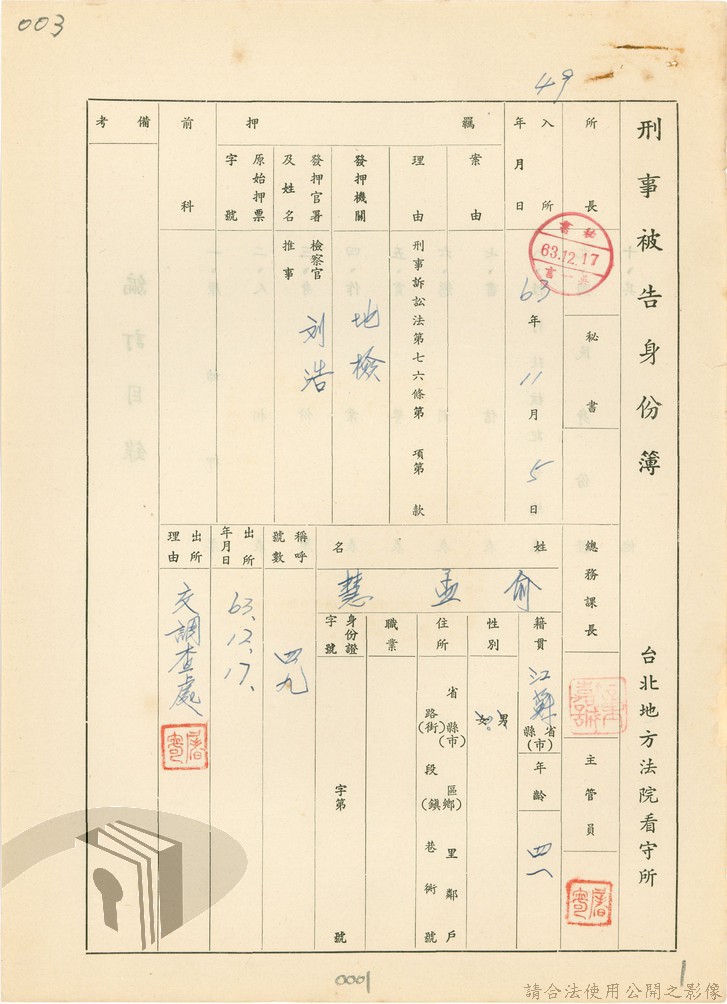 003
49
刑事被告身份簿
台北地方法院看守所
所長
秘書
總務課長
主管員
63.12.17
入所
年月日
63年11月5日
羈押
案由
理由
刑事訴訟法第七六條第 項第 款
發押機關
地檢
發押官署及姓名
檢察官
推事
刘浩
原始押票字號
前科
備考
姓名
俞孟慧
籍貫
江蘇省
縣(市)
年齡
四一
性別
男
女
住所
省縣(市)區鄉(鎮)里鄰戶
路(街)段巷衖號
職業
身份證字號
字第 號
稱呼號數
四九
出所年月日
63.12.17.
出所理由
交調查處
編訂目錄
0001
1
請合法使用公開之影像